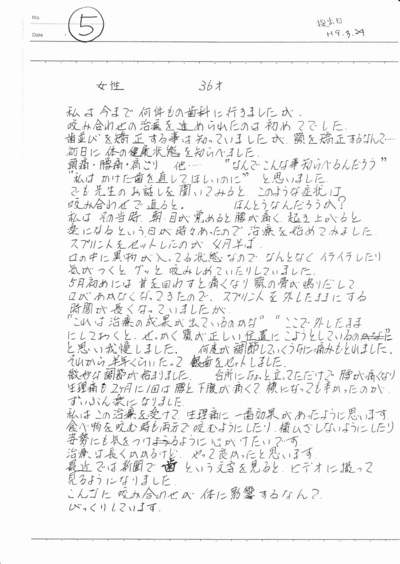 No.
⑤
提出日
Date
H9.3.24
女性 36才
私は今まで何件もの歯科に行きましたが、
咬み合わせの治療を進められたのは初めてでした。
歯並びを矯正する事は知っていましたが、顎を矯正するなんて……
初日に体の健康状態を知らべました。
頭痛・腰痛・肩こり 他…… "なんでこんな事知らべるんだろう"
"私はかけた歯を直してほしいのに" と思いました
でも先生のお話しを聞いてみると このような症状は
咬み合わせで直ると。 ほんとうなんだろうか?
私はその当時、朝目が覚めると腰が痛く、起き上がると
楽になるという日が時々あったので治療を始めてみました。
スプリントをセットしたのが 4月半ば、
口の中に異物が入ってる状態なので なんとなくイライラしたり
気がつくと グッと咬みしめていたりしていました。
5月初めには 首を回わすと痛くなり 顎の骨が鳴りだして
口があかなくなってきたので、スプリントを外したままにする
時間が長くなっていましたが、
"これは治療の成果が出ているのかな" "ここで外したまま
にしておくと、せっかく顎が正しい位置にこようとしているのに"
と思い我慢しました。 何度か調節していくうちに痛みもとれました。
それから半年くらいたって 銀歯をセットしました。
微妙な調節が始まりました。 台所にちょっと立ってただけで 腰が痛くなり
生理痛も2ヶ月に1回は腰と下腹が痛くて 横になっても辛かったのが、
ずいぶん楽になりました。
私はこの治療を受けて 生理痛に一番効果があったように思います。
食べ物を咬む時も両方で咬むようにしたり、横ひざしないようにしたり
姿勢にも気をつけるように 心がけたいです。
治療は長くかかるけど、やって良かったと思います。
最近では新聞で歯という文字を見ると、ビデオに撮って
見るようになりました。
こんなに 咬み合わせが 体に影響するなんて、
びっくりしています。